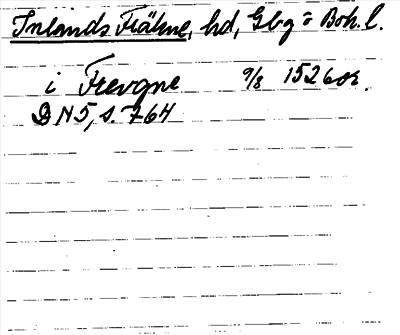 Inlands Fräkne, hd, Gbg o Boh. l.
i Frevgne 9/8 1526 or.
DN 5, s. 764